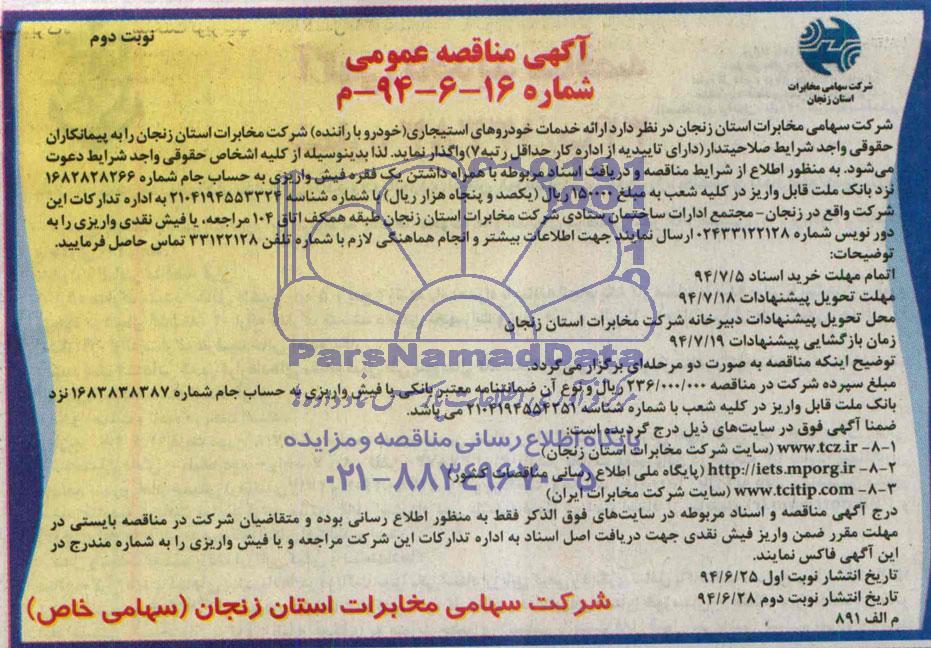 نوبت دوم
شرکت سهامی مخابرات
استان زنجان
آگهی مناقصه عمومی
شماره ۱۶-۶-۹۴-م
شرکت سهامی مخابرات استان زنجان در نظر دارد ارائه خدمات خودروهای استیجاری(خودرو با راننده) شرکت مخابرات استان زنجان را به پیمانکاران
حقوقی واجد شرایط صلاحیتدار(دارای تاییدیه از اداره کار حداقل رتبه۷)واگذار نماید. لذا بدینوسیله از کلیه اشخاص حقوقی واجد شرایط دعوت
می‌شود. به منظور اطلاع از شرایط مناقصه و دریافت اسناد مربوطه با همراه داشتن یک فقره فیش واریزی به حساب جام شماره ۱۶۸۲۸۲۸۲۶۶
نزد بانک ملت قابل واریز در کلیه شعب به مبلغ ۱۵۰۰۰۰ ریال (یکصد و پنجاه هزار ریال) با شماره شناسه ۲۱۰۴۱۹۴۵۵۳۳۲۴ به اداره تدارکات این
شرکت واقع در زنجان- مجتمع ادارات ساختمان ستادی شرکت مخابرات استان زنجان طبقه همکف اتاق ۱۰۴ مراجعه، یا فیش نقدی واریزی را به
دور نویس شماره ۰۲۴۳۳۱۲۲۱۲۸ ارسال نمایند جهت اطلاعات بیشتر و انجام هماهنگی لازم با شماره تلفن ۳۳۱۲۲۱۲۸ تماس حاصل فرمایید.
توضیحات:
اتمام مهلت خرید اسناد ۹۴/۷/۵
مهلت تحویل پیشنهادات ۹۴/۷/۱۸
محل تحویل پیشنهادات دبیرخانه شرکت مخابرات استان زنجان
زمان بازگشایی پیشنهادات ۹۴/۷/۱۹
توضیح اینکه مناقصه به صورت دو مرحله‌ای برگزار می‌گردد.
مبلغ سپرده شرکت در مناقصه ۲۳۶/۰۰۰/۰۰۰ ریال و نوع آن ضمانتنامه معتبر بانکی یا فیش واریزی به حساب جام شماره ۱۶۸۳۸۳۸۳۸۷ نزد
بانک ملت قابل واریز در کلیه شعب با شماره شناسه ۲۱۰۴۱۹۴۵۵۴۲۵۱ می باشد.
ضمنا آگهی فوق در سایت‌های ذیل درج گردیده است:
۸-۱- www.tcz.ir (سایت شرکت مخابرات استان زنجان)
۸-۲- http://iets.mporg.ir (پایگاه ملی اطلاع رسانی مناقصات کشور)
۸-۳- www.tcitip.com (سایت شرکت مخابرات ایران)
درج آگهی مناقصه و اسناد مربوطه در سایت‌های فوق الذکر فقط به منظور اطلاع رسانی بوده و متقاضیان شرکت در مناقصه بایستی در
مهلت مقرر ضمن واریز فیش نقدی جهت دریافت اصل اسناد به اداره تدارکات این شرکت مراجعه و یا فیش واریزی را به شماره مندرج در
این آگهی فاکس نمایند.
تاریخ انتشار نوبت اول ۹۴/۶/۲۵
تاریخ انتشار نوبت دوم ۹۴/۶/۲۸
م الف ۸۹۱
شرکت سهامی مخابرات استان زنجان (سهامی خاص)
ParsNamadData
پایگاه اطلاع رسانی مناقصه و مزایده
۰۲۱-۸۸۳۴۹۶۷۰-۵